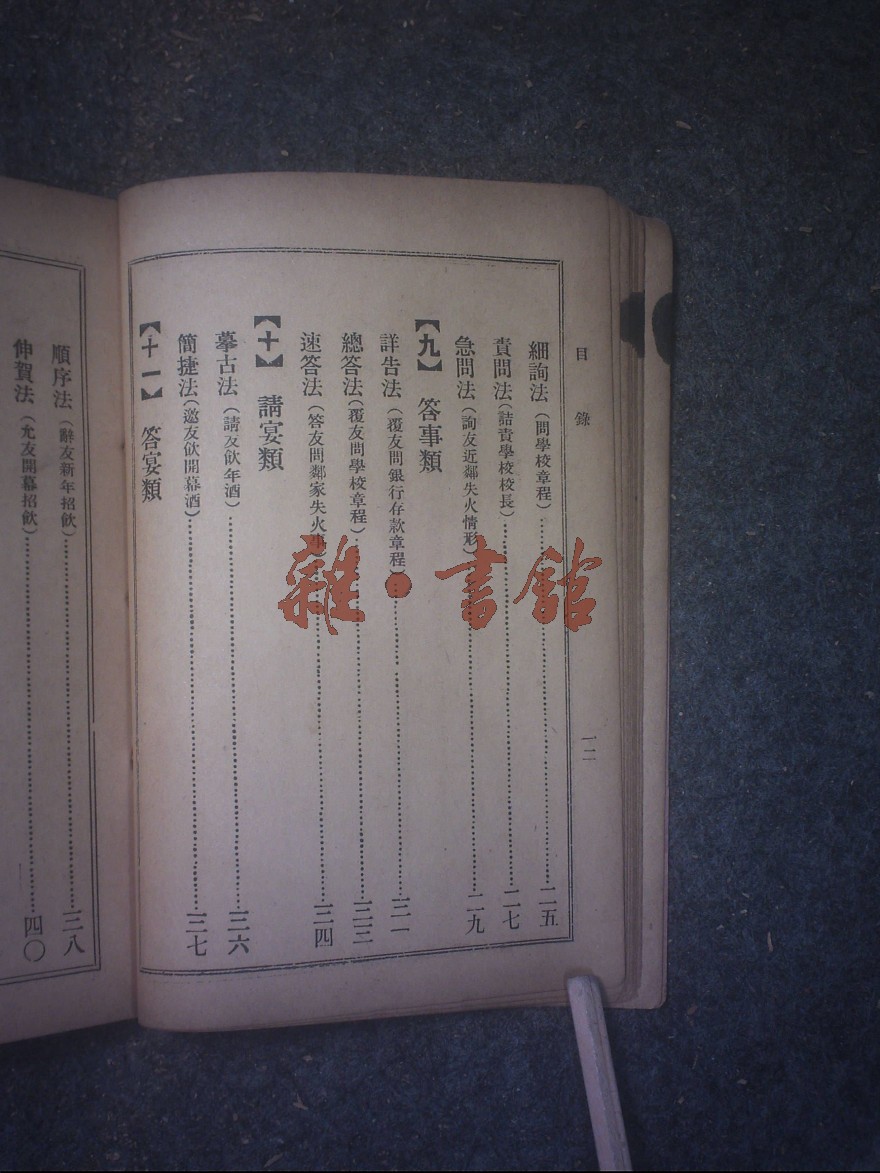 目錄
一二
細詢法（問學校章程）……二五
責問法（詰責學校校長）……二七
急問法（詢友近鄰失火情形）……二九
【九】 答事類
詳告法（覆友問銀行存款章程）……三一
總答法（覆友問學校章程）……三三
速答法（答友問鄰家失火事）……三四
【十】 請宴類
摹古法（請友飲年酒）……三六
簡捷法（邀友飲開幕酒）……三七
【十一】 答宴類
順序法（辭友新年招飲）……三八
伸賀法（允友開幕招飲）……四〇
雜·書館